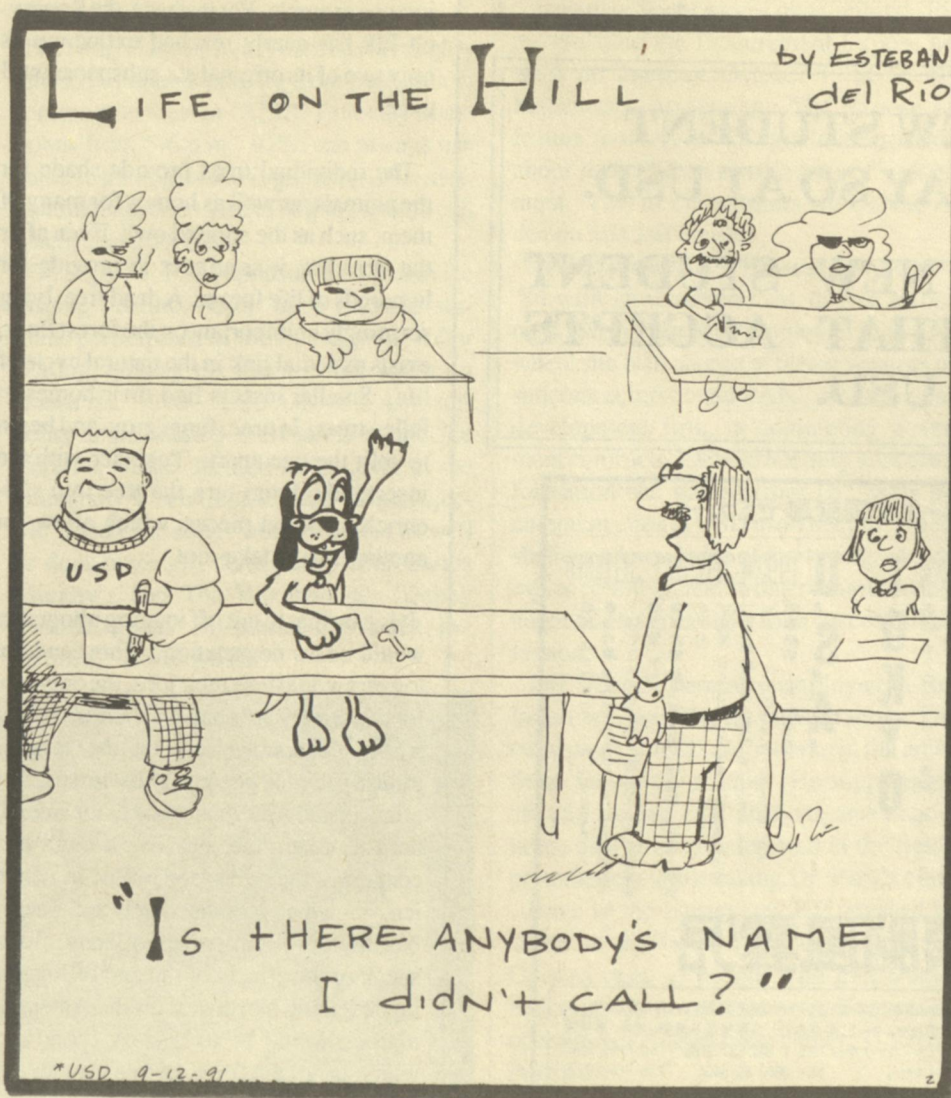 LIFE ON THE HILL
by ESTEBAN
del Río
USD
"IS tHERE ANYBODY'S NAME
I didN't CALL?"
*USD 9-12-91
2